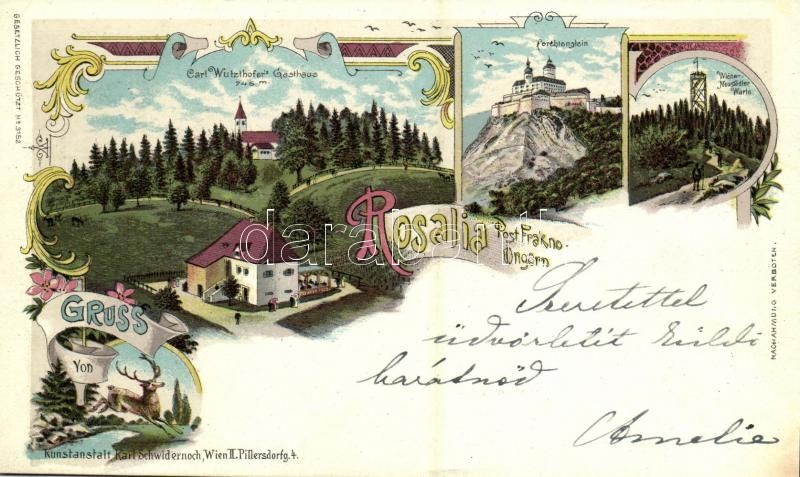 GESETZLICH GESCHÜTZT No. 3152
Carl Wutzlhofer's Gasthaus
746 m.
Forchtenstein
Wiener-
Neustädter
Warte
Rosalia
Post Frakno.
Ungarn
GRUSS
Von
Szeretettel
üdvözletét küldi
barátnőd
Amelie
NACHAHMUNG VERBOTEN.
Kunstanstalt Karl Schwidernoch, Wien II. Pillersdorfg. 4.
darabanth